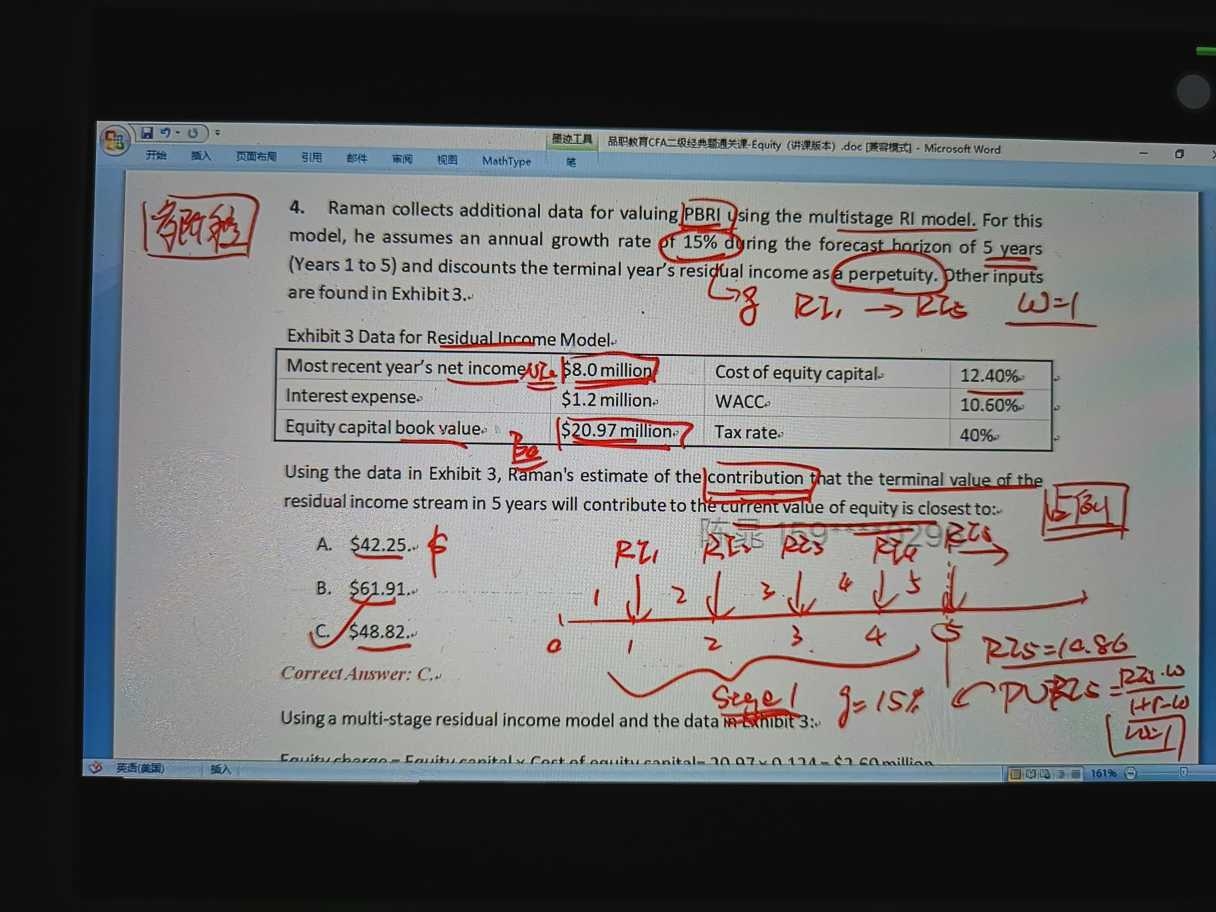 墨迹工具 品职教育CFA二级经典题通关课-Equity（讲课版本）.doc [兼容模式] - Microsoft Word
开始 插入 页面布局 引用 邮件 审阅 视图 MathType 笔
4. Raman collects additional data for valuing PBRI using the multistage RI model. For this
model, he assumes an annual growth rate of 15% during the forecast horizon of 5 years
(Years 1 to 5) and discounts the terminal year's residual income as a perpetuity. Other inputs
are found in Exhibit 3.
g RI₁ → RI₅ ω=1
Exhibit 3 Data for Residual Income Model
Most recent year's net income $8.0 million Cost of equity capital 12.40%
Interest expense $1.2 million WACC 10.60%
Equity capital book value $20.97 million Tax rate 40%
B₀
Using the data in Exhibit 3, Raman's estimate of the contribution that the terminal value of the
residual income stream in 5 years will contribute to the current value of equity is closest to:
A. $42.25.
RI₁ RI₂ RI₃ RI₄ RI₅
B. $61.91.
1 2 3 4 5
C. $48.82.
0 1 2 3 4 5
RI₅=10.86
Correct Answer: C.
Stage 1 g=15% PVRI₅ = RI₅·ω
1+r-ω
ω=1
Using a multi-stage residual income model and the data in Exhibit 3:
Equity charge = Equity capital x Cost of equity capital= 20.97 x 0.124 = $2.60 million
英语(美国) 插入 161%